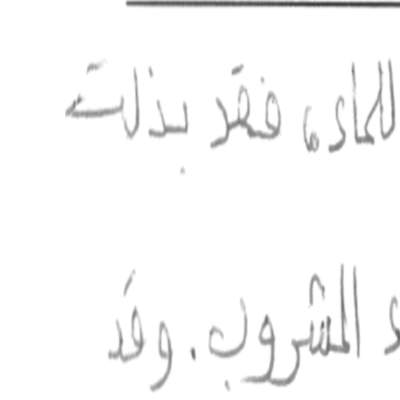 للماء، فقد بذلت
المشروب. وقد